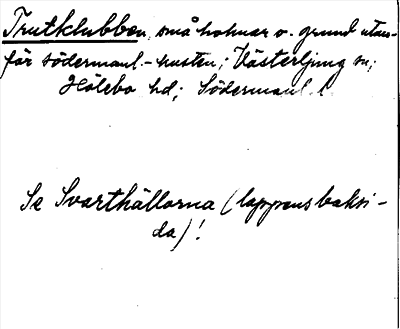 Trutklubben, små holmar o. grund utan-
för södermanl.-kusten; Västerljung sn;
Hölebo hd; Södermanl. l.
Se Svarthällorna (lappens baksi-
da)!